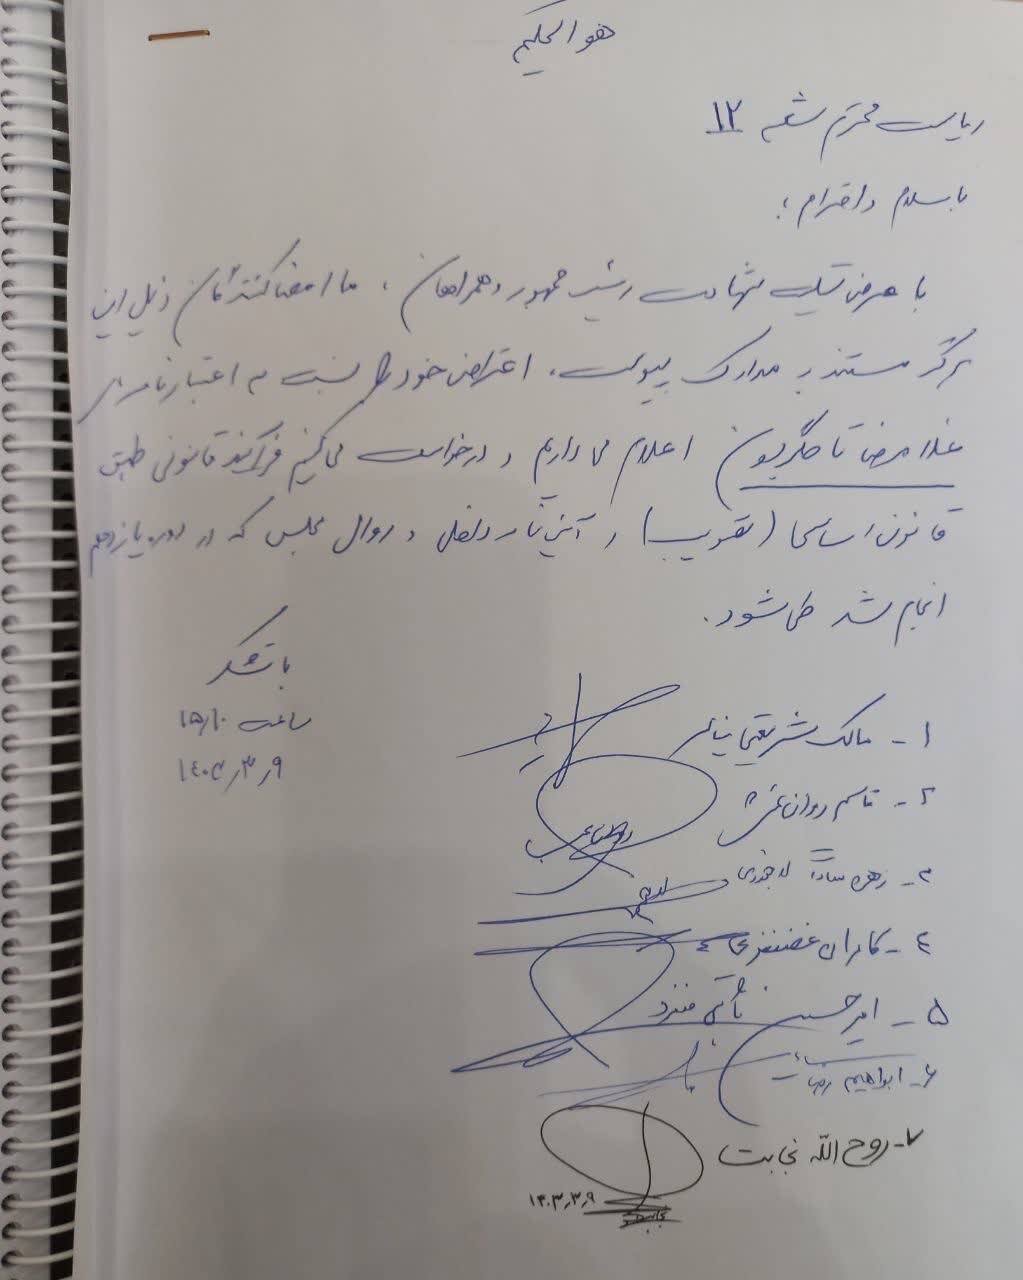 هو الحکیم
ریاست محترم شعبه ۱۲
با سلام و احترام؛
با عرض تسلیت شهادت رئیس جمهور و همراهان، ما امضا کنندگان ذیل این
برگه مستند به مدارک پیوست، اعتراض خود را نسبت به اعتبارنامه
غلامرضا تاجگردون اعلام می داریم و درخواست می کنیم فرآیند قانونی طبق
قانون اساسی ( ) و آئین نامه داخلی و روال مجلس که در دوره یازدهم
انجام شد طی شود.
با تشکر
ساعت ۱۵/۱۰
۱۴۰۳٫۳٫۹
۱- مالک شریعتی نیاسر
۲- قاسم روانبخش
۳- زهره سادات لاجوردی
٤- کامران غضنفری
۵- امیرحسین ثابتی منفرد
۶- ابراهیم رضائی
۷- روح اللّه نجابت
۱۴۰۳٫۳٫۹